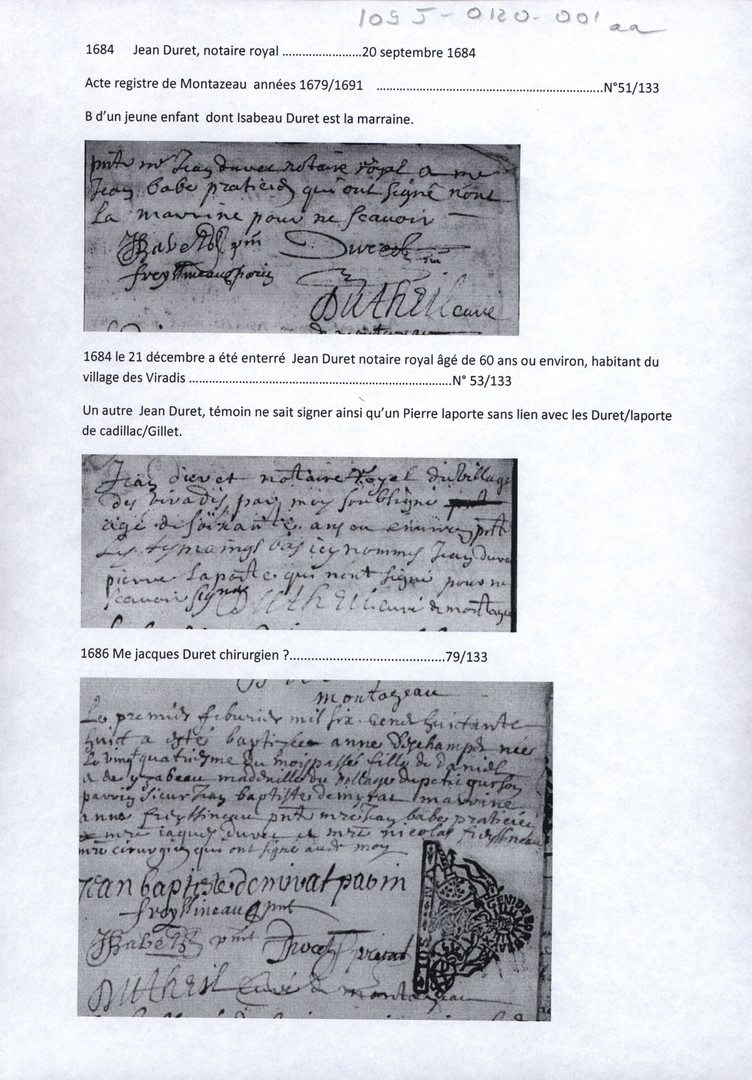 1684 Jean Duret, notaire royal ......................20 septembre 1684
Acte registre de Montazeau années 1679/1691 ..............................................................N°51/133
B d'un jeune enfant dont Isabeau Duret est la marraine.
pnts mr Jean duret notaire royal & me
Jean babe praticien qui ont signé non
la marrine pour ne scauoir
Duret
Dutheil curé
de montazeau
1684 le 21 décembre a été enterré Jean Duret notaire royal âgé de 60 ans ou environ, habitant du
village des Viradis .........................................................................N° 53/133
Un autre Jean Duret, témoin ne sait signer ainsi qu'un Pierre laporte sans lien avec les Duret/laporte
de cadillac/Gillet.
Jean duret notaire Royal du village
des viradis, par moy soubsigné
agé de soixante ans ou enuiron pnts
Les tesmoings bas icy nommes Jean dure
pierre Laporte qui nont signé pour ne
scauoir signe Dutheil curé de montaze
1686 Me jacques Duret chirurgien ?...........................................79/133
montazeau
Le premier feburier mil six cens huictante
huict a estée baptizee anne Deschamps née
Le vingt quatriesme du mois passé fille de daniel
& de yzabeau du village de
parrin sieur Jean baptiste demirat marrine
anne freyssineau pnt mre Jean babe praticien
mre iaques duret & mre nicolas freyssineau
mre cirurgien qui ont signé auec moy
Jean baptiste demirat parin
freyssineau pnt
Babe pnt Duret
Dutheil Curé de montazeau